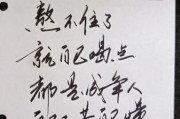 熬不住了
就自己喝点
都是成年人